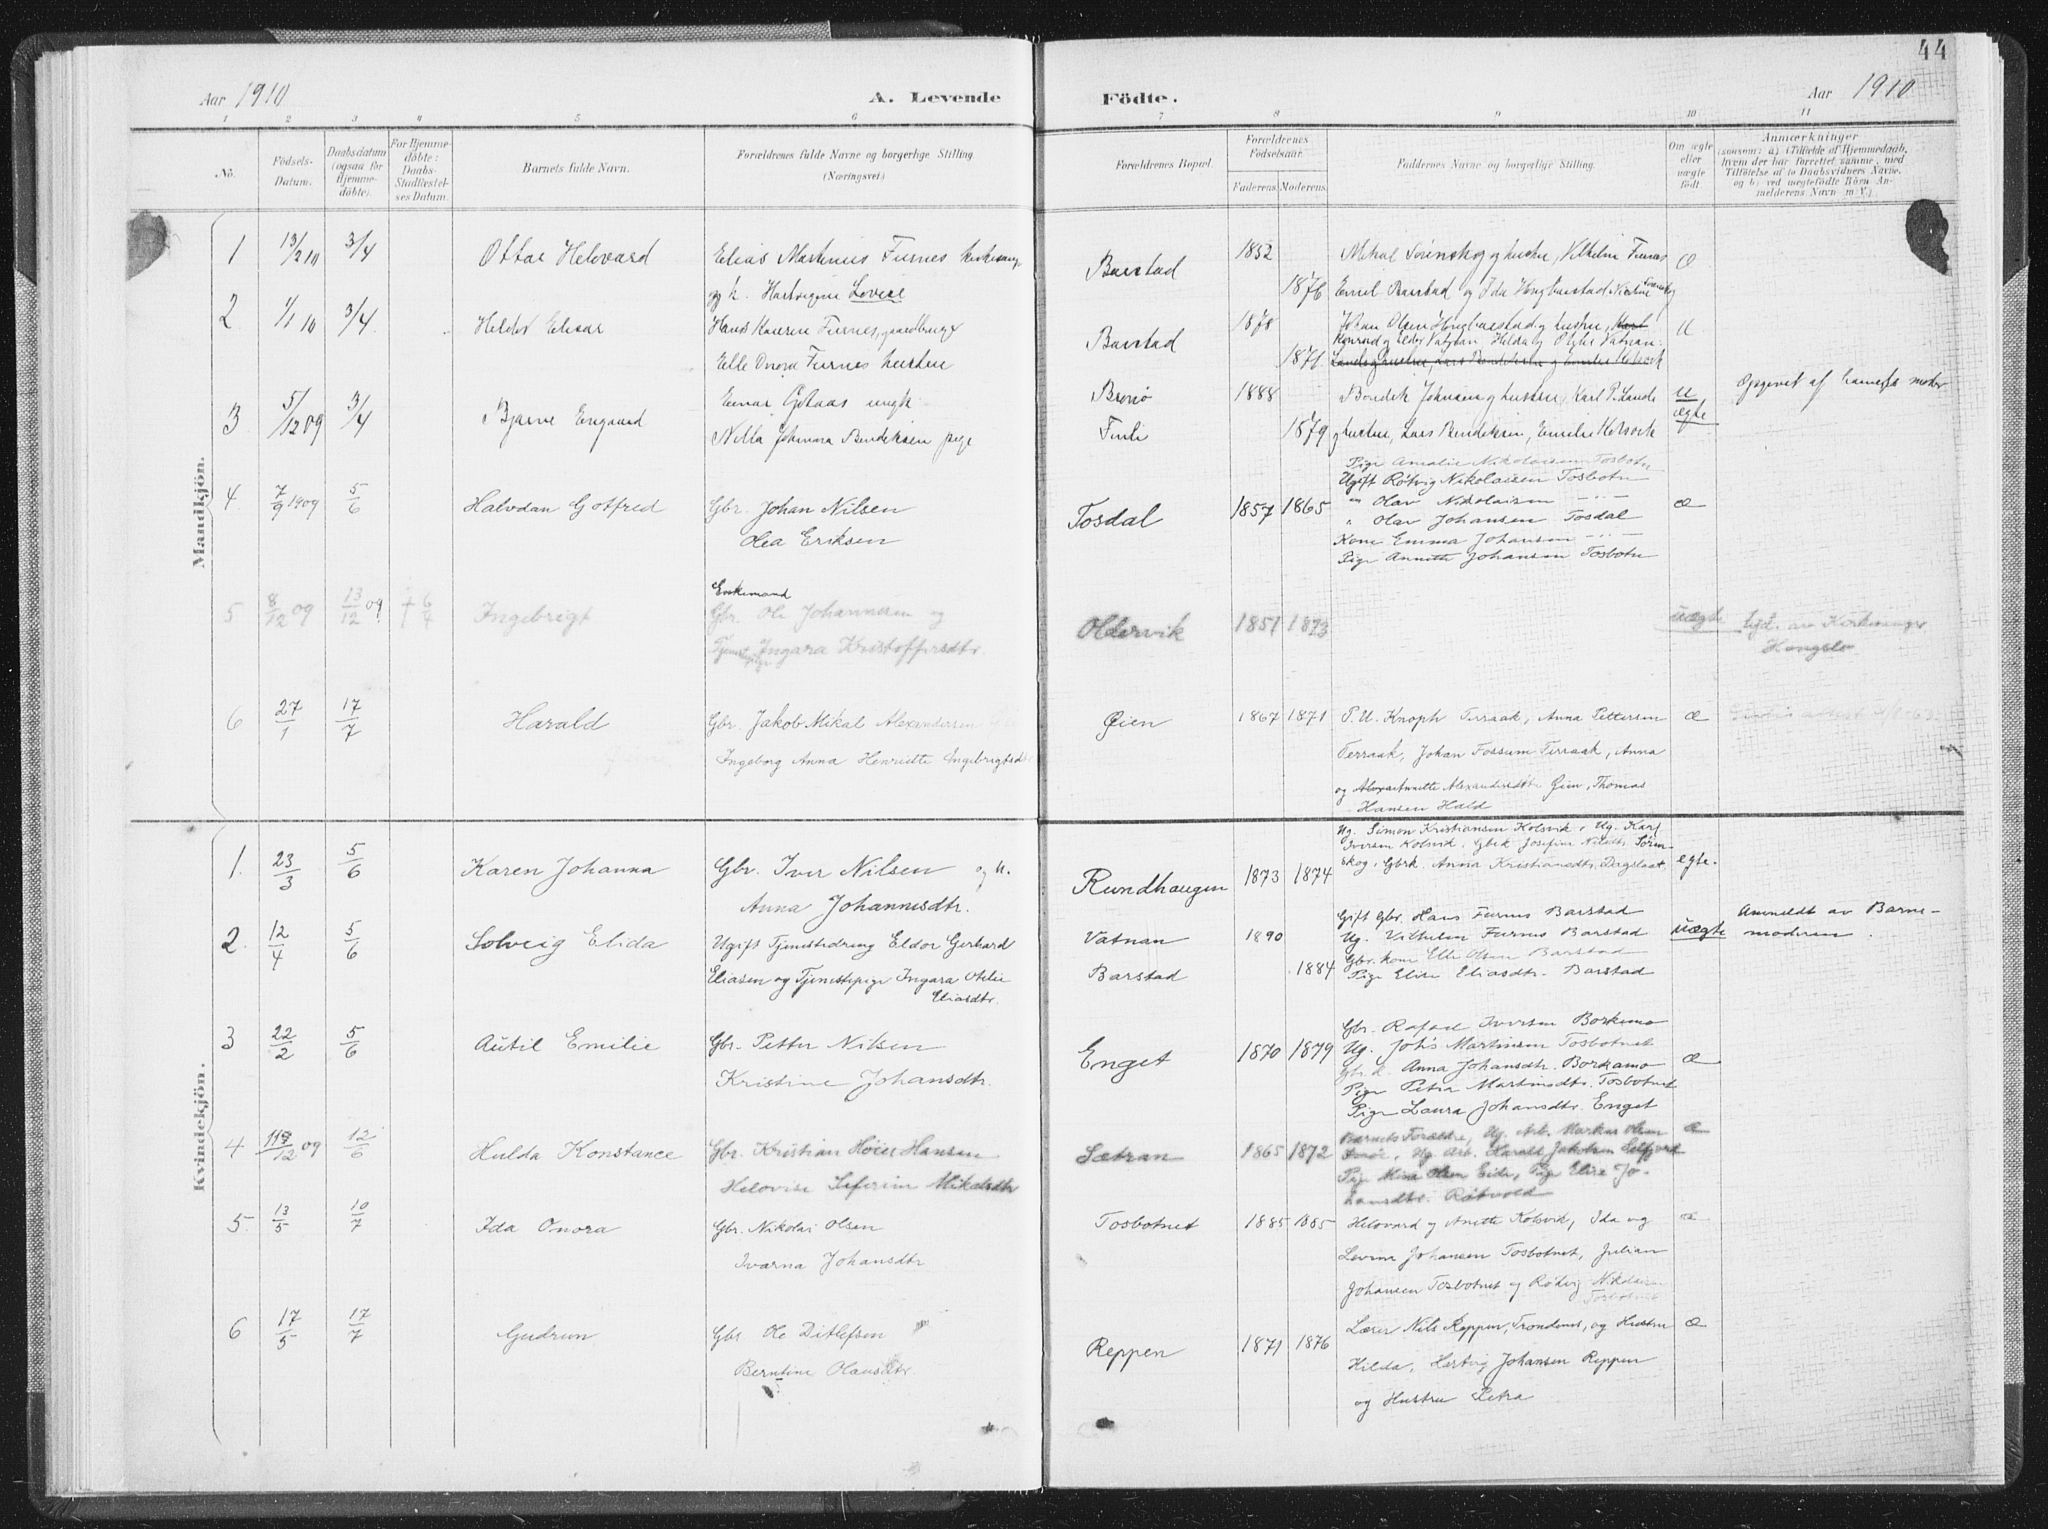 44
Aar 1910
A. Levende
Födte.
Aar 1910
1 2 3 4 5 6 7 8 9 10 11
No.
Födsels-Datum.
Daabsdatum (ogsaa for Hjemme-döbte).
For Hjemme-döbte: Daabs-Stadfæstel-ses Datum.
Barnets fulde Navn.
Forældrenes fulde Navne og borgerlige Stilling (Næringsvei).
Forældrenes Bopæl.
Forældrenes Födselsaar.
Faderens. Moderens.
Faddernes Navne og borgerlige Stilling.
Om ægte eller uægte födt
Anmærkninger
(saasom: a) i Tilfælde af Hjemmedaab,
hvem der har forrettet samme, med
Tilföielse af to Daabsvidners Navne.
og b) ved uægtefödte Börn An-
melderens Navn m. V.)
Mandkjön.
1 13/2 10 3/4 Ottar Helovard Elias Martinius Furnes kirkesang. Barstad 1852 Mikal Sörenskog og hustru, Vilhelm Furnes
og h. Hartvigine Lovise 1876 Emil Barstad og Ida Hongbarstad
2 1/1 10 3/4 Hans Kaurin Furnes, gaardbruger Barstad 1878 Johan Olsen Hongbarstad og hustru,
Elle Onora Furnes hustru 1871
3 5/12 09 3/4 Bjarne Engaard Einar ungk. Brönö 1888 Bendik Johnsen og hustru, Karl P. Lande u ægte Opgivet af barnets moder
Nella Johnara Bendiksen pige 1879 og hustru, Lars Bendiksen, Emilie Kolsvik
Pige Amalie Nikolaisen Tosbotn
4. 7/9 1909 5/6 Halvdan Gotfred Gbr. Johan Nilsen Tosdal 1857 1865 Ugift Rötvig Nikolaisen Tosbotn æ
" Olav Nikolaisen — " —
" Olav Johansen Tosdal
Olea Eriksen Kone Emma Johansen — " —
Pige Annette Johansen Tosbotn
Enkemand
5 8/12 09 13/12 09 † 6/4 Ingebrigt Gbr. Ole Johannesen og Oldervik 1851 1873 uægte
Ingara Kristoffersdtr.
6 27/1 17/7 Harald Gbr. Jakob Mikal Alexandersen Öien 1867 1871 P. U. Knoph Terraak, Anna Pettersen æ
Ingeborg Anna Henriette Ingebrigtsd. Terraak, Johan Fossum Terraak, Anna
Öien, Thomas
Hansen Hald
Kvindekjön.
Ug. Simon Kristiansen Kolsvik, Ug. Karl
Iversen Kolsvik, Gbrk Josefine Nilsdtr Sören-
1. 23/3 5/6 Karen Johanna Gbr. Iver Nilsen og h. Rundhaugen 1873 1874 skog, Gbrk. Anna Kristiansdtr. Dagslaat egte.
Anna Johannesdtr.
Gift Gbr. Hans Furnes Barstad Anmeldt av Barne-
2. 12/4 5/6 Solveig Elida Ugift Tjenestedreng Eldor Gerhard Vatnan 1890 Ug. Vilhelm Furnes Barstad uægte moderen.
Gbr. kone Elle Olsen Barstad
Eliasen og Tjenestepige Ingara Otilie Barstad 1884 Pige Elise Eliasdtr. Barstad
Eliasdtr.
Gbr. Rafael Iversen Borkamo
3 22/2 5/6 Autil Emilie Gbr. Petter Nilsen Enget 1870 1879 Ug. Johs Martinsen Tosbotnet æ
Gbr.k. Anna Johansdtr. Borkamo
Kristine Johansdtr. Pige Petra Martinsdtr. Tosbotnet
Pige Laura Johansdtr. Enget
4 12/6 Hulda Konstance Gbr. Kristian Höier Hansen Sætran 1865 1872 Barnets Forældre, Ug. Arb. Markus Olsen æ
Ug. Arb. Harald Jakobsen Selfjord
Helovise Seferine Mikalsdtr Pige Mina Olsen Eide, Pige Elise Jo-
hansdtr. Rötvold
5. 13/5 10/7 Ida Onora Gbr. Nikolai Olsen Tosbotnet 1885 1885 Helovard og Anette Kolsvik, Ida og æ
Ivarna Johansdtr Levina Johansen Tosbotnet, Julian
Johansen Tosbotnet og Rötvig Nikolaisen
Tosbotnet
6 17/5 17/7 Gudrun Gbr Ole Ditlefsen Reppen 1871 1876 Lærer Nils Reppen, Trondenes, og Hustru æ
Berntine Olausdtr. Hilda, Hertvig Johansen Reppen
og Hustru Petra